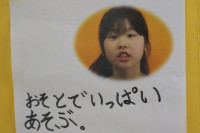 おそとでいっぱい
あそぶ。